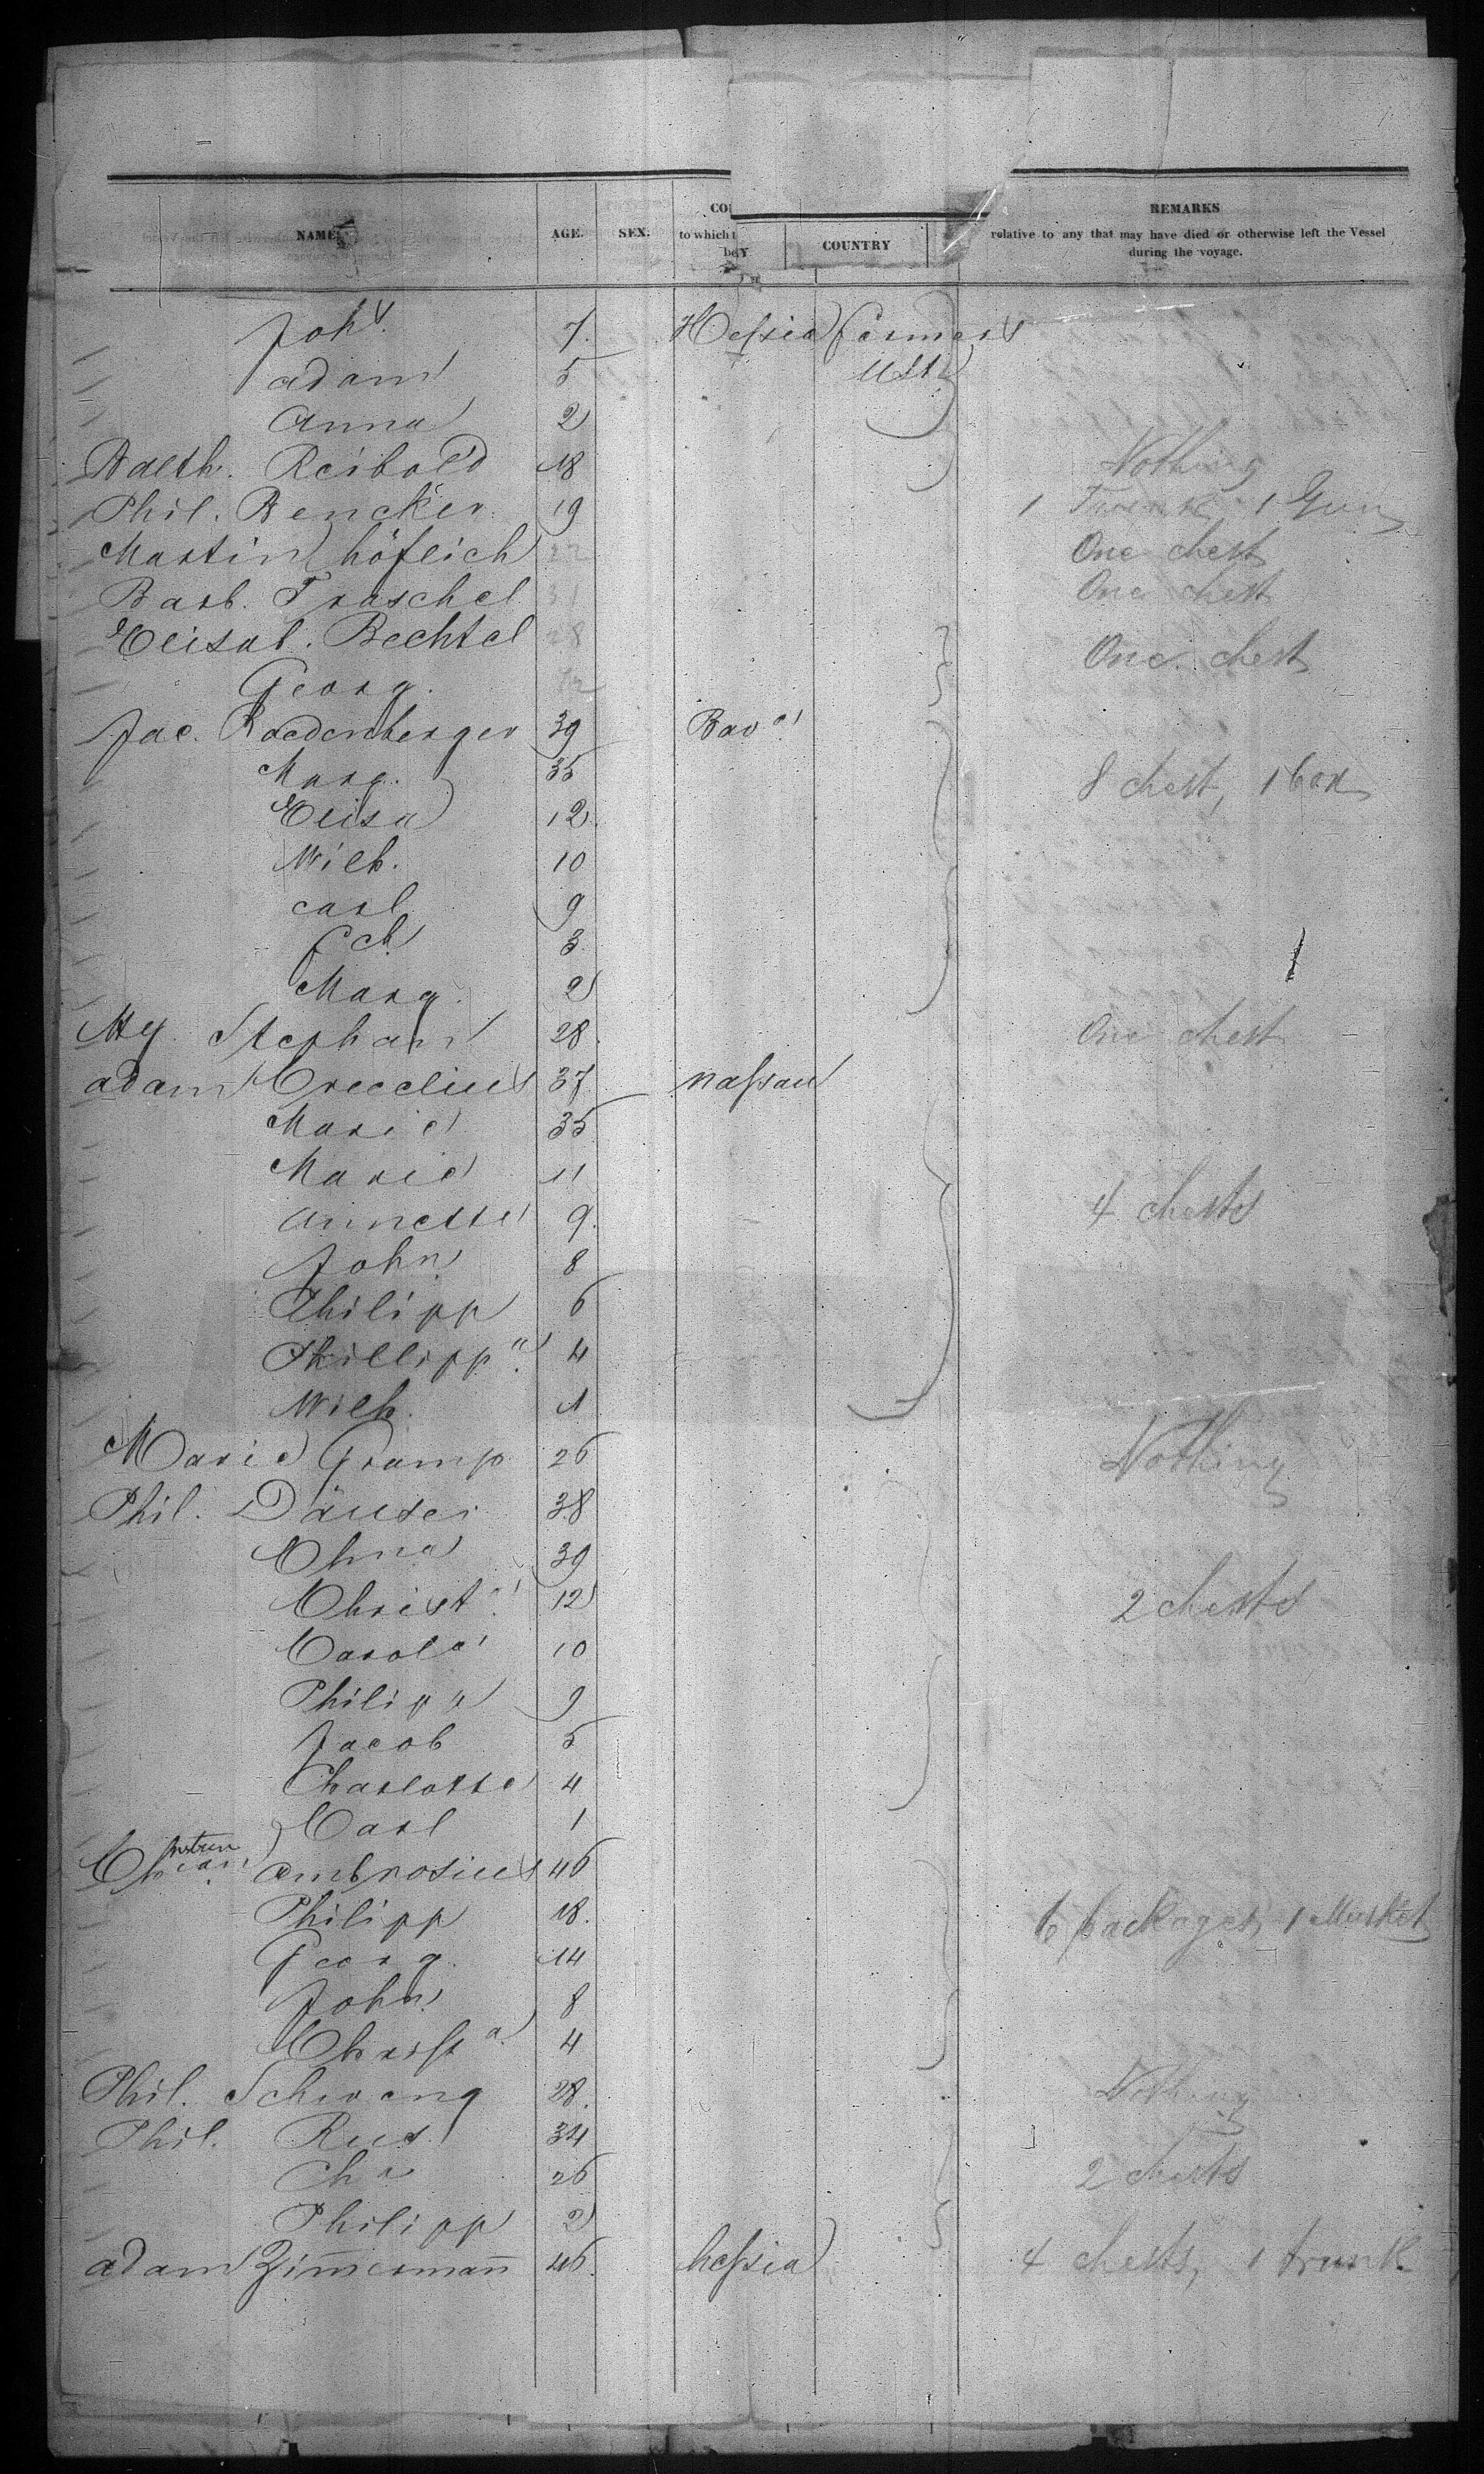 NAMES AGE. SEX. to which COUNTRY REMARKS
relative to any that may have died or otherwise left the Vessel during the voyage.
Joh. 7. Hessia farmers
adam 5 USt.
Anna 2
Balth. Reibold 18 Nothing
Phil. Bencker 19 1 Trunk 1 Gun
Martin höflich 22 One chest
Barb. Traschel 31 One chest
Elisab. Bechtel 28 One chest
Georg.
Jac. Raedenberger 39 Bava
Marg. 35 8 chest, 1 box
Elisa 12.
Wilh. 10
carl 9
3
Marg. 2
Stephan 28. One chest
adam Creçelius 37 nassau
Marie 35
Marie 11
Annette 9. 4 chests
John 8
Philipp 6
Phillippa 4
Wilh. 1
Marie Gramp 26 Nothing
Phil. Däuser 38
39
Christ. 12 2 chests
Carola 10
Philipp 9
Jacob 5
Charlotte 4
Carl 1
ambrosius 46
Philipp 18. 6 packages, 1 Musket
Georg. 14
John 8
Christa 4
Phil. Schweng 28. Nothing
Phil. Rus 34
Cha 26 2 chests
Philipp 2
adam Zimmermann 46. hessia 4 chests, 1 trunk